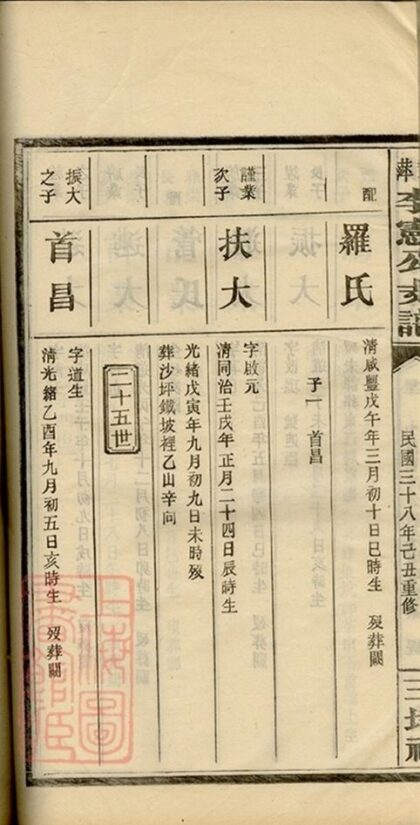 李憲公支譜
民國三十八年己丑重修
配
羅氏
清咸豐戊午年三月初十日巳時生 歿葬闕
子一 首昌
謹業
次子
扶大
字啟元
清同治壬戌年正月二十四日辰時生
光緒戊寅年九月初九日未時歿
葬沙坪鐵坡裡乙山辛向
二十五世
振大
之子
首昌
字道生
清光緒乙酉年九月初五日亥時生 歿葬闕